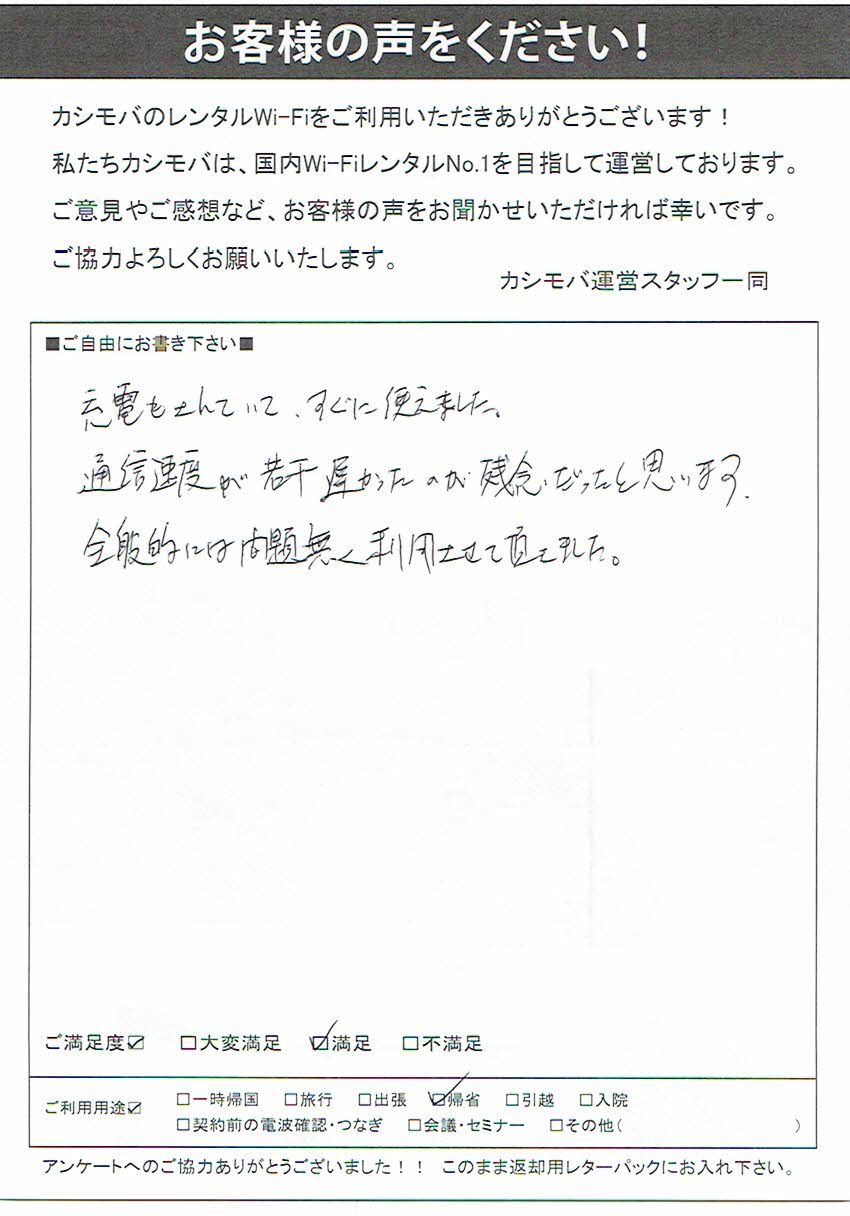 お客様の声をください!
カシモバのレンタルWi-Fiをご利用いただきありがとうございます!
私たちカシモバは、国内Wi-FiレンタルNo.1を目指して運営しております。
ご意見やご感想など、お客様の声をお聞かせいただければ幸いです。
ご協力よろしくお願いいたします。
カシモバ運営スタッフ一同
■ご自由にお書き下さい■
充電もされていて、すぐに使えました。
通信速度が若干遅かったのが残念だったと思います。
全般的には問題無く利用させて頂きました。
ご満足度☑ □大変満足 ☑満足 □不満足
ご利用用途☑ □一時帰国 □旅行 □出張 ☑帰省 □引越 □入院
□契約前の電波確認・つなぎ □会議・セミナー □その他( )
アンケートへのご協力ありがとうございました!! このまま返却用レターパックにお入れ下さい。